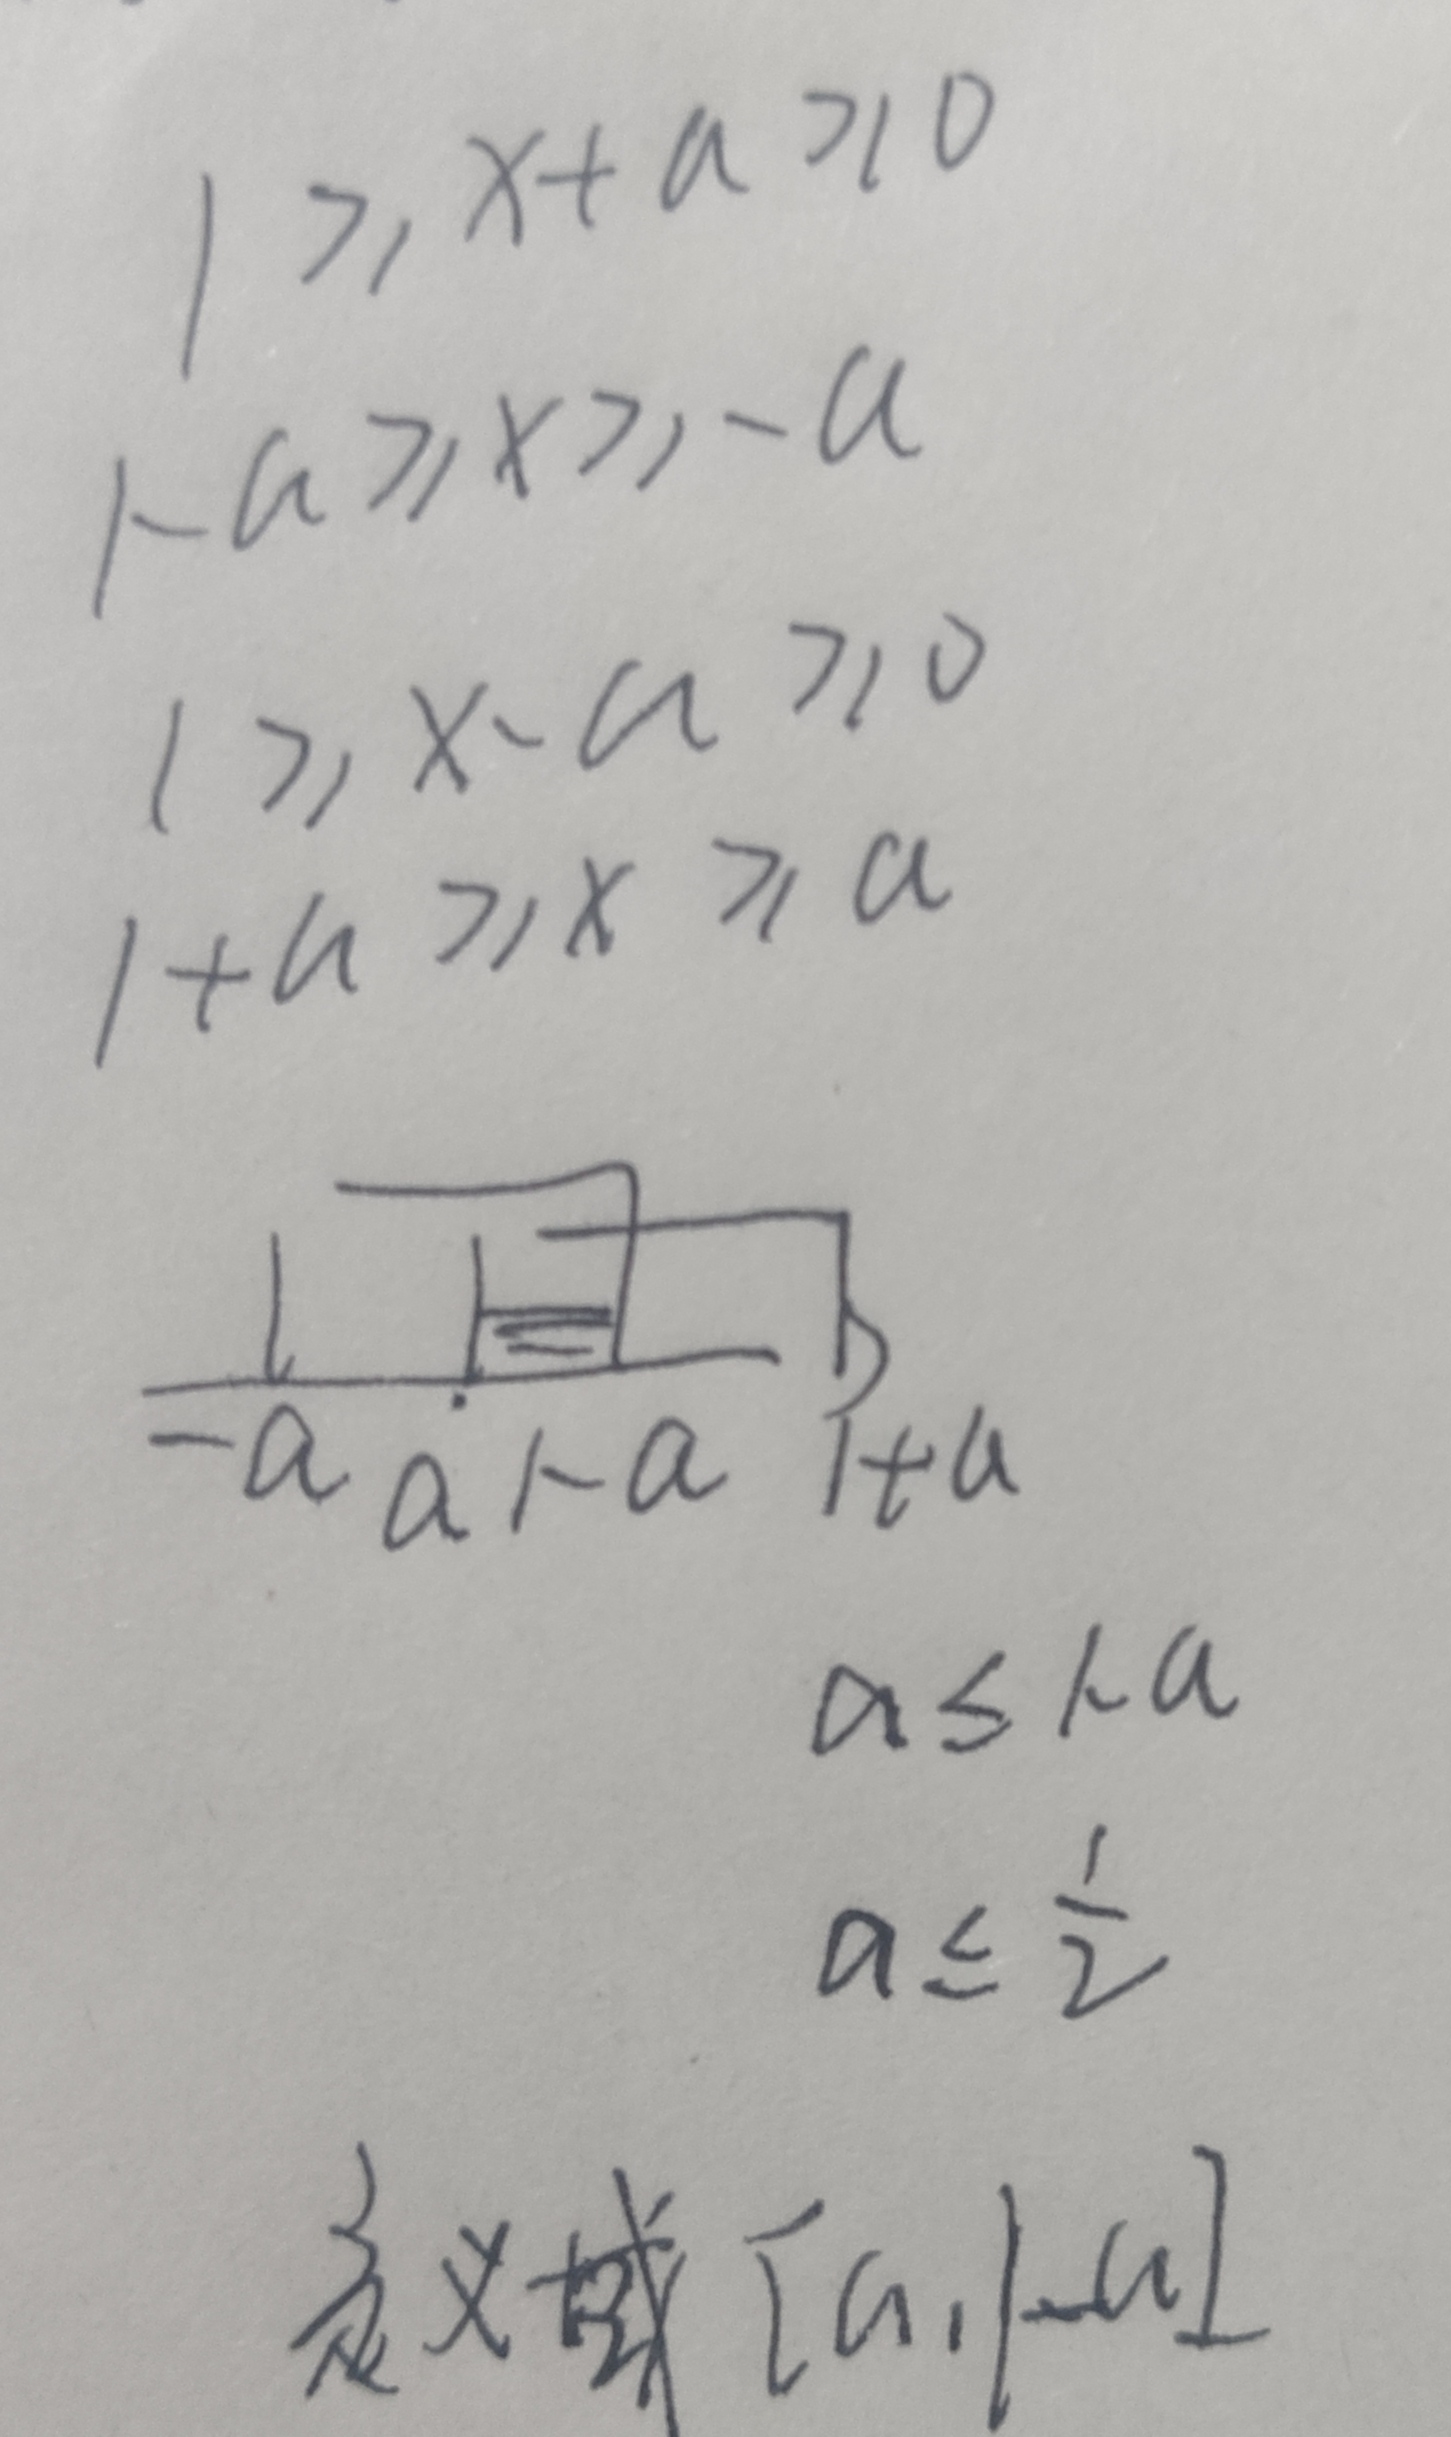 1 ⩾ x + a ⩾ 0
1 - a ⩾ x ⩾ - a
1 ⩾ x - a ⩾ 0
1 + a ⩾ x ⩾ a
-a a 1-a 1+a
a ≤ 1-a
a ≤ 1/2
定义域 [a, 1-a]